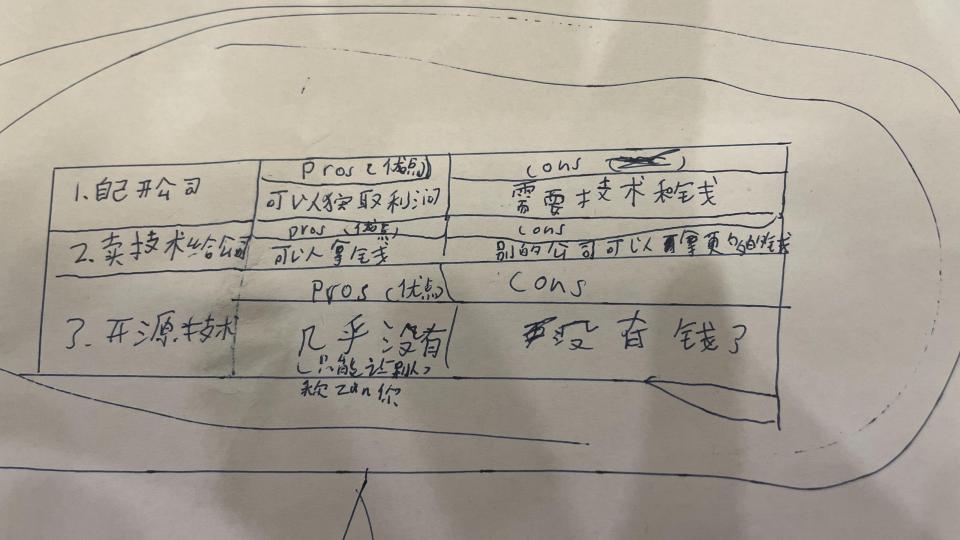 Pros (优点)
cons
1.自己开公司
可以获取利润
需要技术和钱
pros (优点)
cons
2.卖技术给公司
可以拿钱
别的公司可以拿更多的钱
Pros (优点)
Cons
3.开源技术
几乎没有
没有钱了
(只能让别人
称zan你